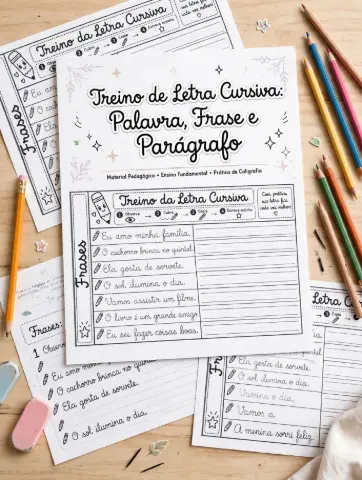 Treino de Letra Cursiva
Frases
O c
Treino de Letra Cursiva:
Palavra, Frase e
Parágrafo
Material Pedagógico • Ensino Fundamental • Prática de Caligrafia
Treino da Letra Cursiva
1 Observe
2 Cubra
3 Copie
4 Escreva sozinho
Com prática, sua letra fica cada vez melhor!
Frases
Eu amo minha família.
O cachorro brinca no quintal.
Ela gosta de sorvete.
O sol ilumina o dia.
Vamos assistir um filme.
O livro é um grande amigo.
Eu sei fazer coisas boas.
Frases:
1 Observe
Eu amo minh
O cachorro brinca no
Ela gosta de sorvete.
O sol ilumina o dia.
Letra C
Ela gosta de sorvete.
O sol ilumina o dia.
Vamos a
A menina sorri feliz.